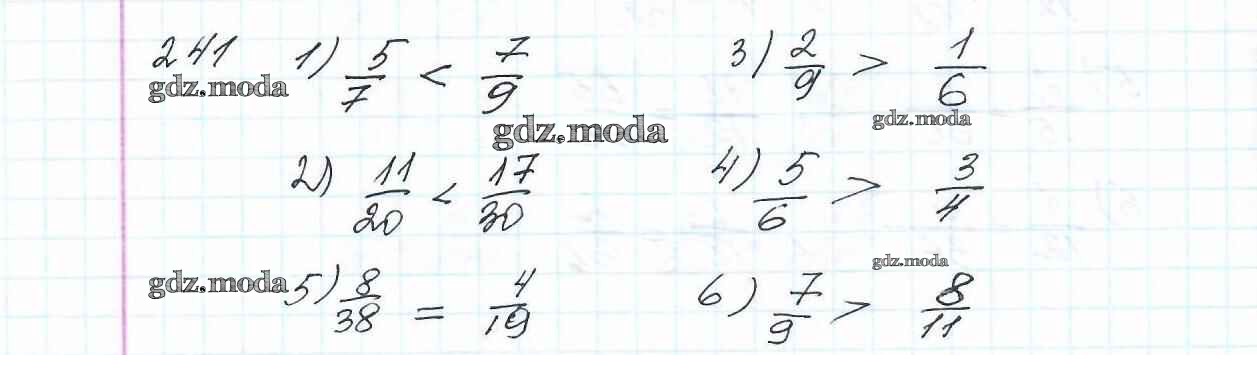 241 1) 5/7 < 7/9 3) 2/9 > 1/6
gdz.moda
gdz.moda
gdz.moda
2) 11/20 < 17/30 4) 5/6 > 3/4
gdz.moda
gdz.moda
5) 8/38 = 4/19 6) 7/9 > 8/11